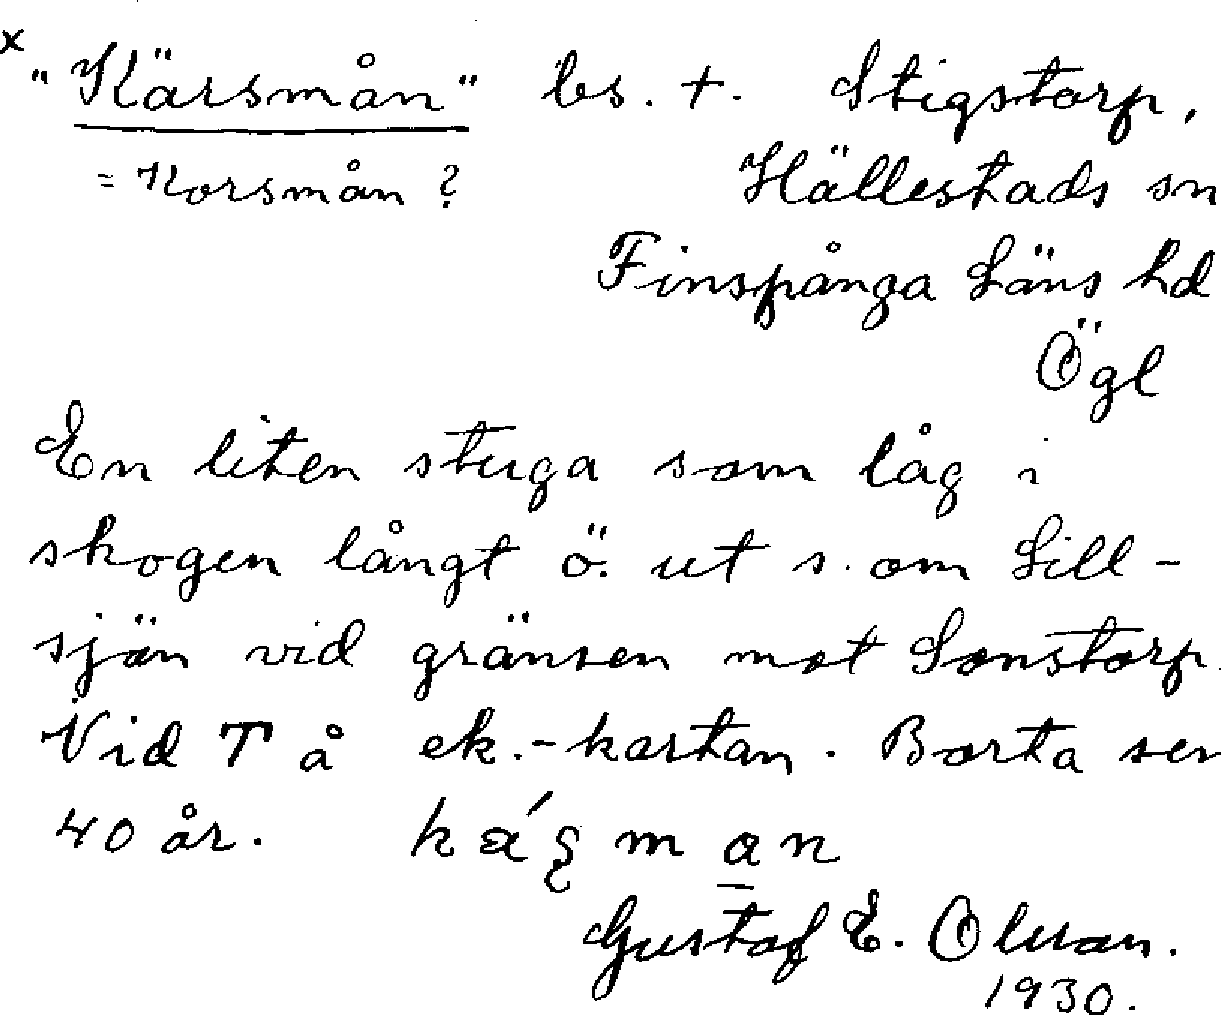 x "Kärsmån" bs. +. Stigstorp,
= Korsmån? Hällestads sn
Finspånga Läns hd
Ögl
En liten stuga som låg i
skogen långt ö. ut s. om Lill-
sjön vid gränsen mot Sonstorp.
Vid T å ek.-kartan. Borta sen
40 år.
Gustaf E. Olsson.
1930.